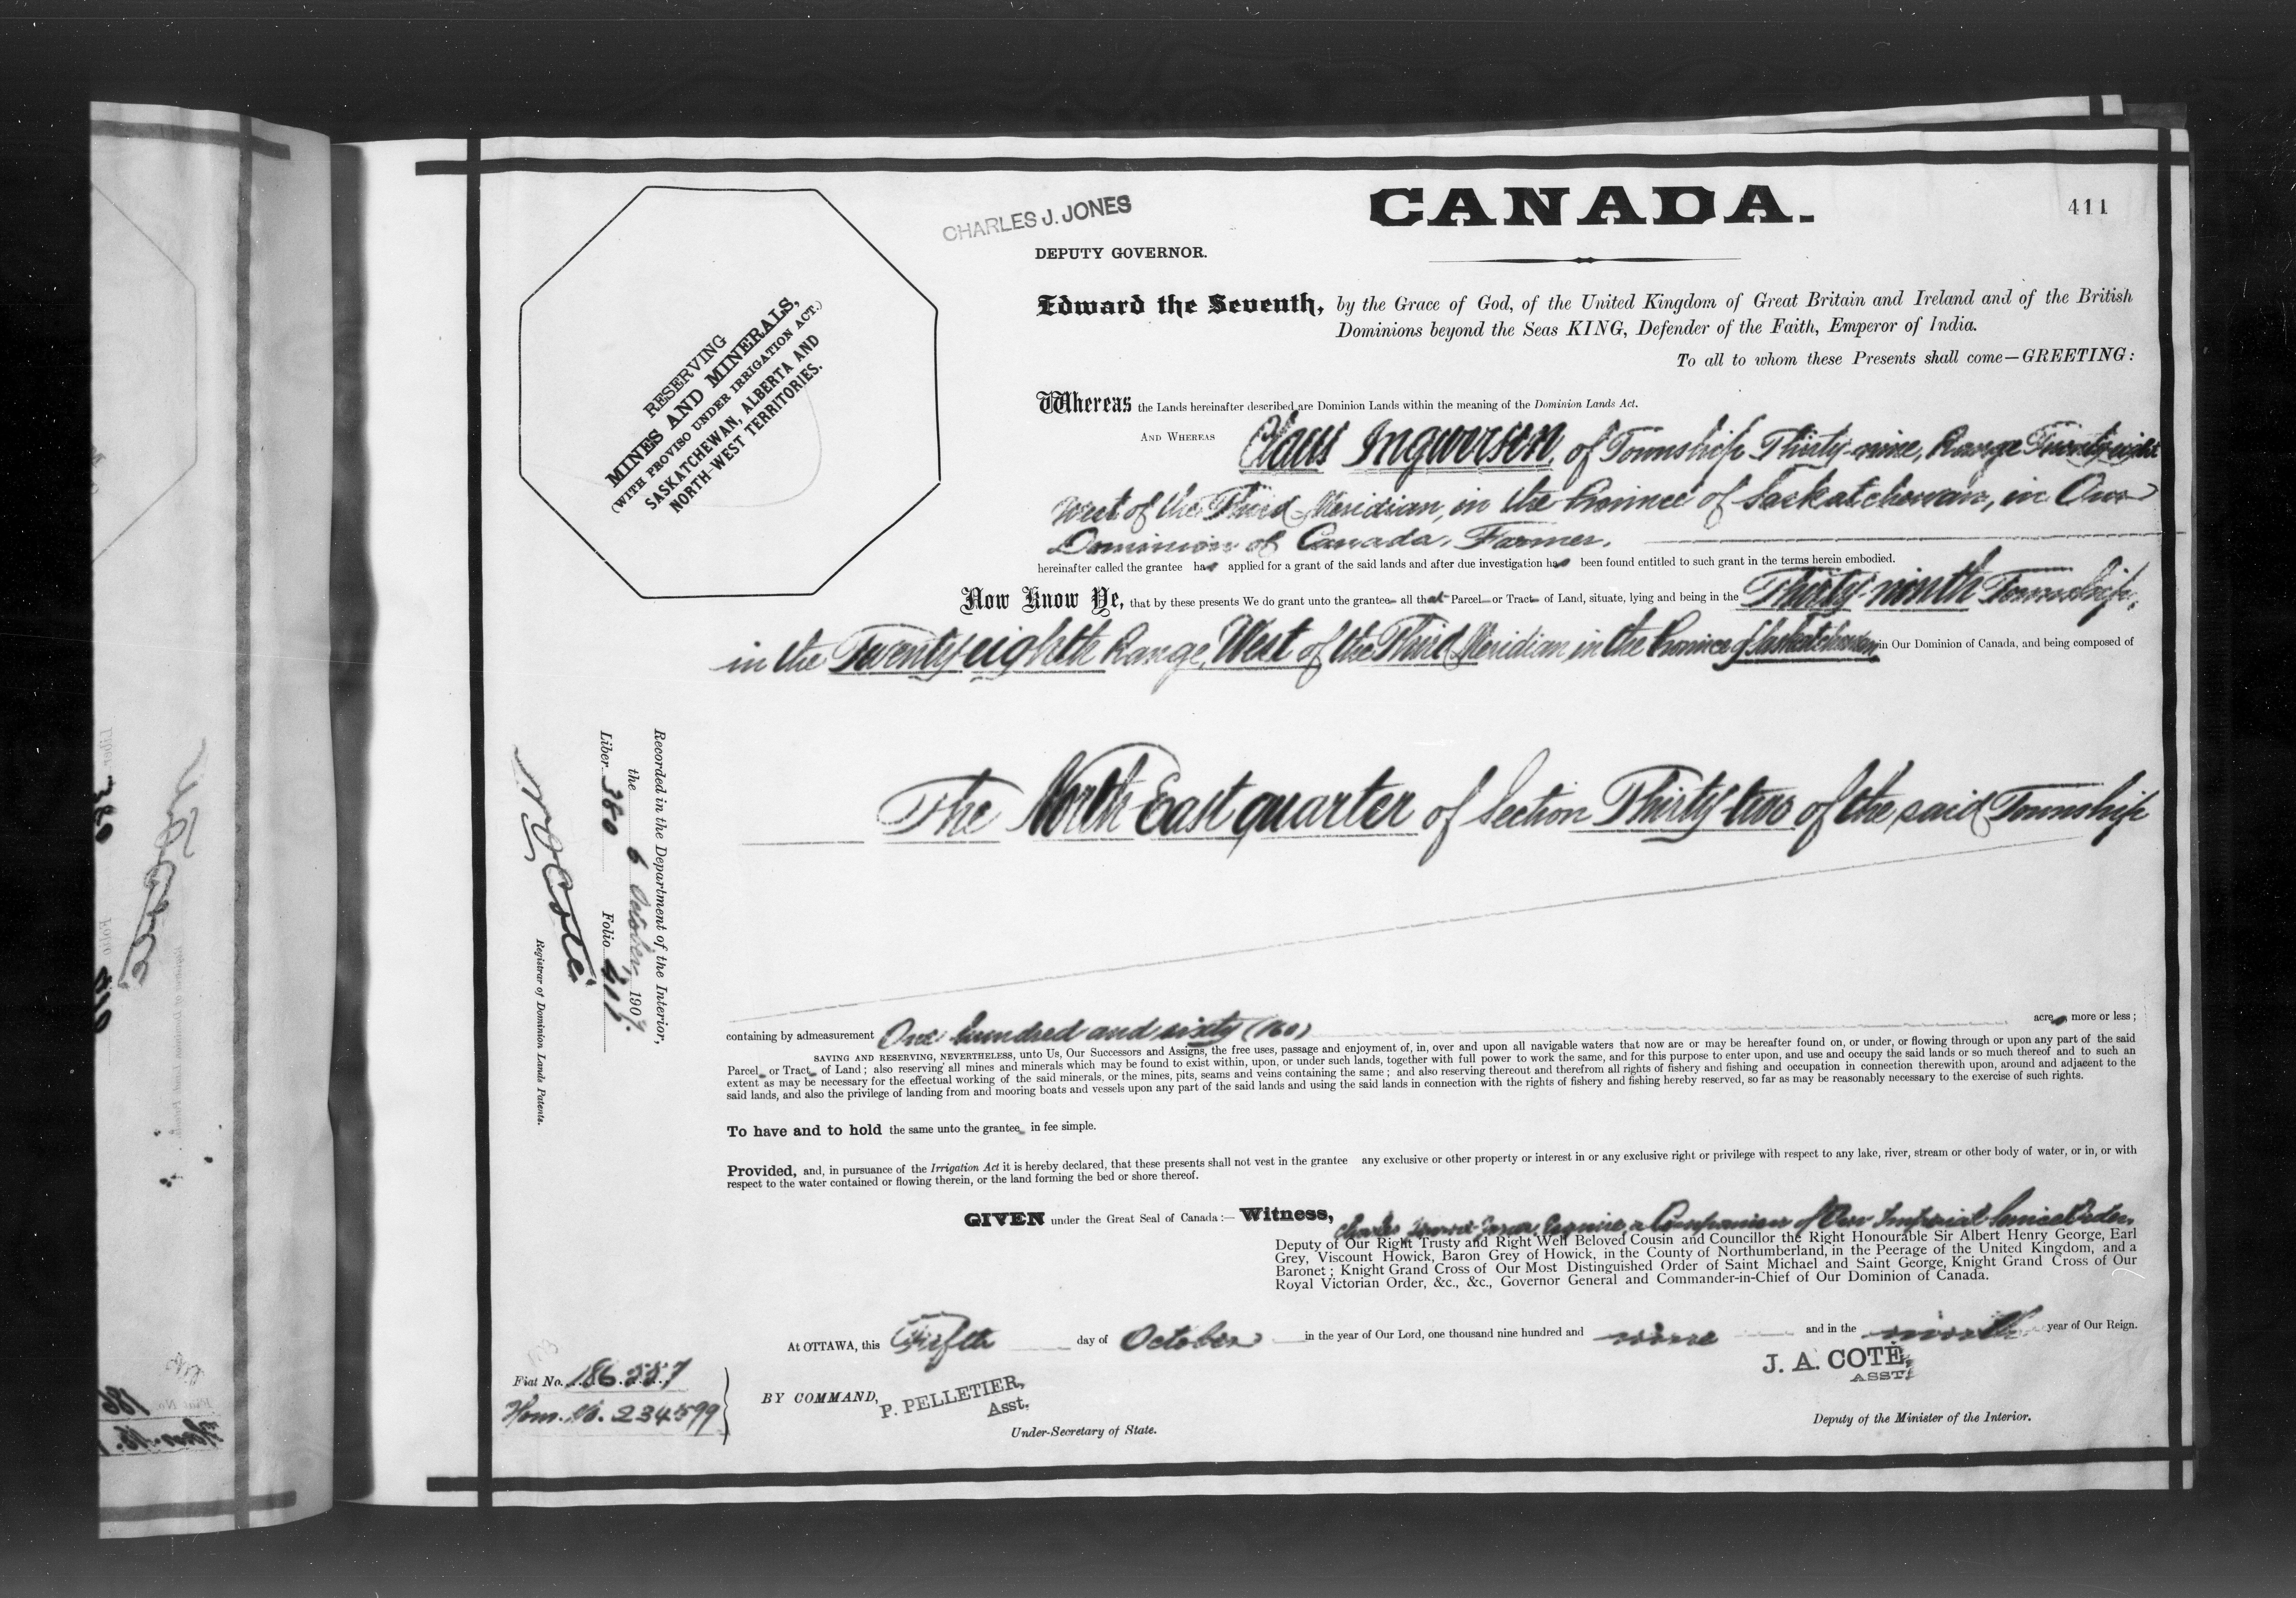 CANADA.
411
CHARLES J. JONES
DEPUTY GOVERNOR.
RESERVING
MINES AND MINERALS,
(WITH PROVISO UNDER IRRIGATION ACT.)
SASKATCHEWAN, ALBERTA AND
NORTH-WEST TERRITORIES.
Edward the Seventh, by the Grace of God, of the United Kingdom of Great Britain and Ireland and of the British
Dominions beyond the Seas KING, Defender of the Faith, Emperor of India.
To all to whom these Presents shall come—GREETING:
Whereas the Lands hereinafter described are Dominion Lands within the meaning of the Dominion Lands Act.
AND WHEREAS Claus Ingwersen, of Township Thirty-nine, Range Twenty-eight
West of the Third Meridian, in the Province of Saskatchewan, in Our
Dominion of Canada, Farmer.
hereinafter called the grantee has applied for a grant of the said lands and after due investigation has been found entitled to such grant in the terms herein embodied.
Now Know Ye, that by these presents We do grant unto the grantee all that Parcel or Tract of Land, situate, lying and being in the Thirty-ninth Township,
in the Twenty-eighth Range, West of the Third Meridian in the Province of Saskatchewan in Our Dominion of Canada, and being composed of
The North East quarter of Section Thirty-two of the said Township
containing by admeasurement One hundred and sixty (160) acres, more or less;
SAVING AND RESERVING, NEVERTHELESS, unto Us, Our Successors and Assigns, the free uses, passage and enjoyment of, in, over and upon all navigable waters that now are or may be hereafter found on, or under, or flowing through or upon any part of the said
Parcel or Tract of Land; also reserving all mines and minerals which may be found to exist within, upon, or under such lands, together with full power to work the same, and for this purpose to enter upon, and use and occupy the said lands or so much thereof and to such an
extent as may be necessary for the effectual working of the said minerals, or the mines, pits, seams and veins containing the same; and also reserving thereout and therefrom all rights of fishery and fishing and occupation in connection therewith upon, around and adjacent to the
said lands, and also the privilege of landing from and mooring boats and vessels upon any part of the said lands and using the said lands in connection with the rights of fishery and fishing hereby reserved, so far as may be reasonably necessary to the exercise of such rights.
To have and to hold the same unto the grantee in fee simple.
Provided, and, in pursuance of the Irrigation Act it is hereby declared, that these presents shall not vest in the grantee any exclusive or other property or interest in or any exclusive right or privilege with respect to any lake, river, stream or other body of water, or in, or with
respect to the water contained or flowing therein, or the land forming the bed or shore thereof.
GIVEN under the Great Seal of Canada:— Witness, Charles Jones, Esquire, a Companion of Our Imperial Service Order,
Deputy of Our Right Trusty and Right Well Beloved Cousin and Councillor the Right Honourable Sir Albert Henry George, Earl
Grey, Viscount Howick, Baron Grey of Howick, in the County of Northumberland, in the Peerage of the United Kingdom, and a
Baronet; Knight Grand Cross of Our Most Distinguished Order of Saint Michael and Saint George, Knight Grand Cross of Our
Royal Victorian Order, &c., &c., Governor General and Commander-in-Chief of Our Dominion of Canada.
At OTTAWA, this Fifth day of October in the year of Our Lord, one thousand nine hundred and nine and in the ninth year of Our Reign.
J. A. COTE,
ASST.
BY COMMAND, P. PELLETIER,
Asst.
Under-Secretary of State.
Deputy of the Minister of the Interior.
Fiat No. 186227
Hom. No. 234599
Recorded in the Department of the Interior,
the 6 October, 1909.
Liber 380 Folio 411.
N O Coté
Registrar of Dominion Lands Patents.